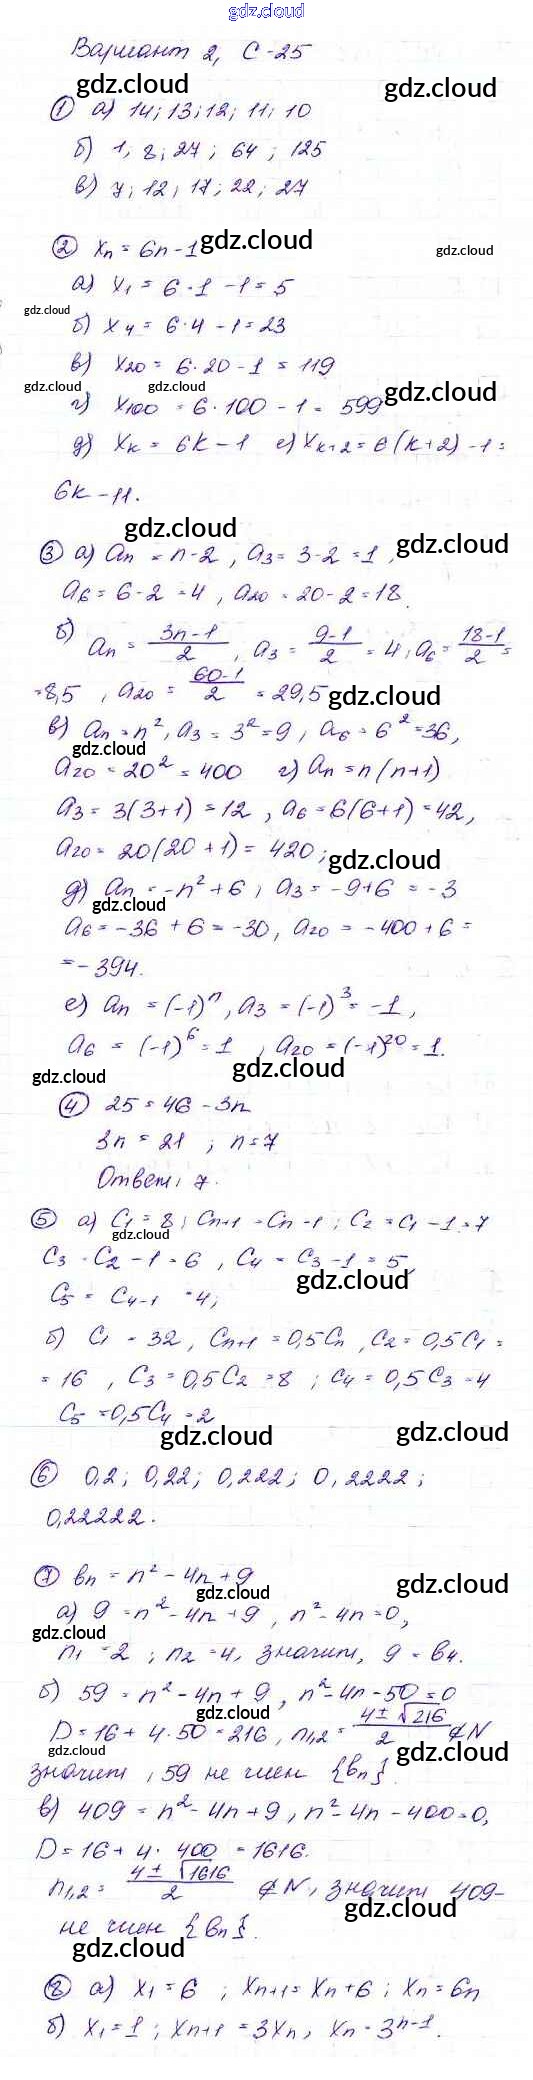 gdz.cloud
Вариант 2, С-25
gdz.cloud gdz.cloud
① а) 14; 13; 12; 11; 10
б) 1, 8; 27; 64; 125
в) 7; 12; 17; 22; 27
② xₙ = 6n - 1 gdz.cloud gdz.cloud
а) x₁ = 6·1 - 1 = 5
gdz.cloud
б) x₄ = 6·4 - 1 = 23
в) x₂₀ = 6·20 - 1 = 119
gdz.cloud gdz.cloud gdz.cloud
г) x₁₀₀ = 6·100 - 1 = 599
д) xₖ = 6k - 1 е) xₖ₊₂ = 6(k+2) - 1 =
6k - 11.
gdz.cloud gdz.cloud
③ а) aₙ = n - 2, a₃ = 3 - 2 = 1,
a₆ = 6 - 2 = 4, a₂₀ = 20 - 2 = 18.
б) aₙ = (3n-1)/2, a₃ = (9-1)/2 = 4; a₆ = (18-1)/2 =
= 8,5, a₂₀ = (60-1)/2 = 29,5 gdz.cloud
в) aₙ = n², a₃ = 3² = 9, a₆ = 6² = 36,
gdz.cloud
a₂₀ = 20² = 400 г) aₙ = n(n+1)
a₃ = 3(3+1) = 12, a₆ = 6(6+1) = 42,
a₂₀ = 20(20+1) = 420; gdz.cloud
д) aₙ = -n² + 6, a₃ = -9+6 = -3
gdz.cloud
a₆ = -36 + 6 = -30, a₂₀ = -400 + 6 =
= -394.
е) aₙ = (-1)ⁿ, a₃ = (-1)³ = -1,
a₆ = (-1)⁶ = 1, a₂₀ = (-1)²⁰ = 1.
gdz.cloud gdz.cloud
④ 25 = 46 - 3n
3n = 21; n = 7
Ответ: 7.
⑤ а) C₁ = 8; Cₙ₊₁ = Cₙ - 1; C₂ = C₁ - 1 = 7
gdz.cloud
C₃ = C₂ - 1 = 6, C₄ = C₃ - 1 = 5,
gdz.cloud
C₅ = C₄₋₁ = 4;
б) C₁ = 32, Cₙ₊₁ = 0,5Cₙ, C₂ = 0,5C₁ =
= 16, C₃ = 0,5C₂ = 8; C₄ = 0,5C₃ = 4
C₅ = 0,5C₄ = 2
gdz.cloud gdz.cloud
⑥ 0,2; 0,22; 0,222; 0,2222;
0,22222.
⑦ bₙ = n² - 4n + 9
gdz.cloud gdz.cloud
а) 9 = n² - 4n + 9, n² - 4n = 0,
gdz.cloud
n₁ = 2; n₂ = 4, значит, 9 = b₄.
б) 59 = n² - 4n + 9, n² - 4n - 50 = 0
gdz.cloud
D = 16 + 4·50 = 216, n₁,₂ = (4±√216)/2 ∉ N
gdz.cloud gdz.cloud
значит, 59 не член {bₙ}.
в) 409 = n² - 4n + 9, n² - 4n - 400 = 0,
D = 16 + 4·400 = 1616.
n₁,₂ = (4±√1616)/2 ∉ N, значит 409-
gdz.cloud
не член {bₙ}.
gdz.cloud gdz.cloud
⑧ а) x₁ = 6; xₙ₊₁ = xₙ + 6; xₙ = 6n
б) x₁ = 1; xₙ₊₁ = 3xₙ, xₙ = 3ⁿ⁻¹.